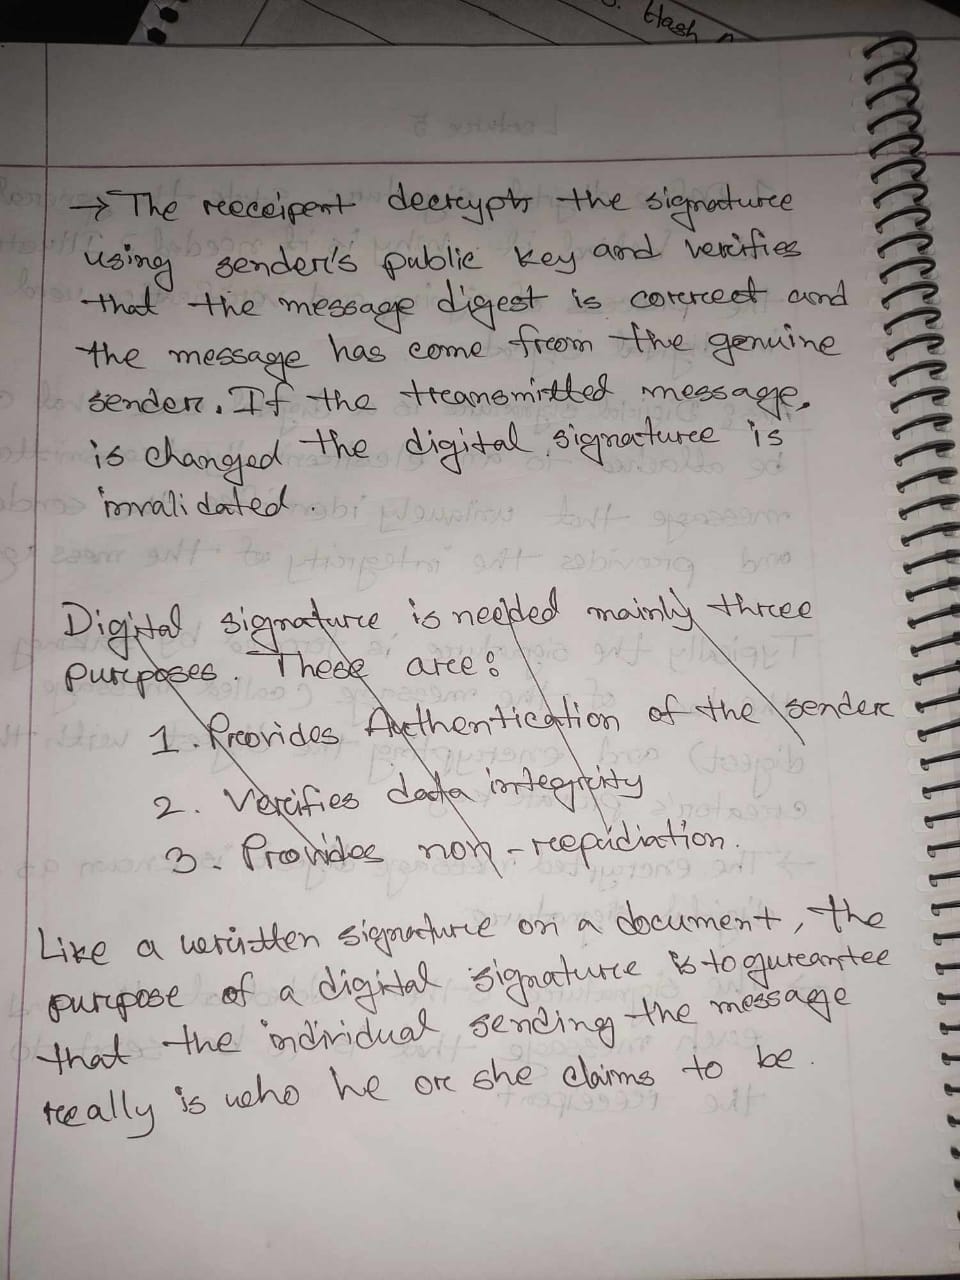 Hash
→ The receipent decrypts the signature
using sender's public key and verifies
that the message digest is correct and
the message has come from the genuine
sender. If the transmitted message,
is changed the digital signature is
invalidated.
Digital signature is needed mainly three
purposes. These are:
1. Provides Authentication of the sender
2. Verifies data integrity
3. Provides non-repudiation.
Like a written signature on a document, the
purpose of a digital signature is to gurantee
that the individual sending the message
really is who he or she claims to be.